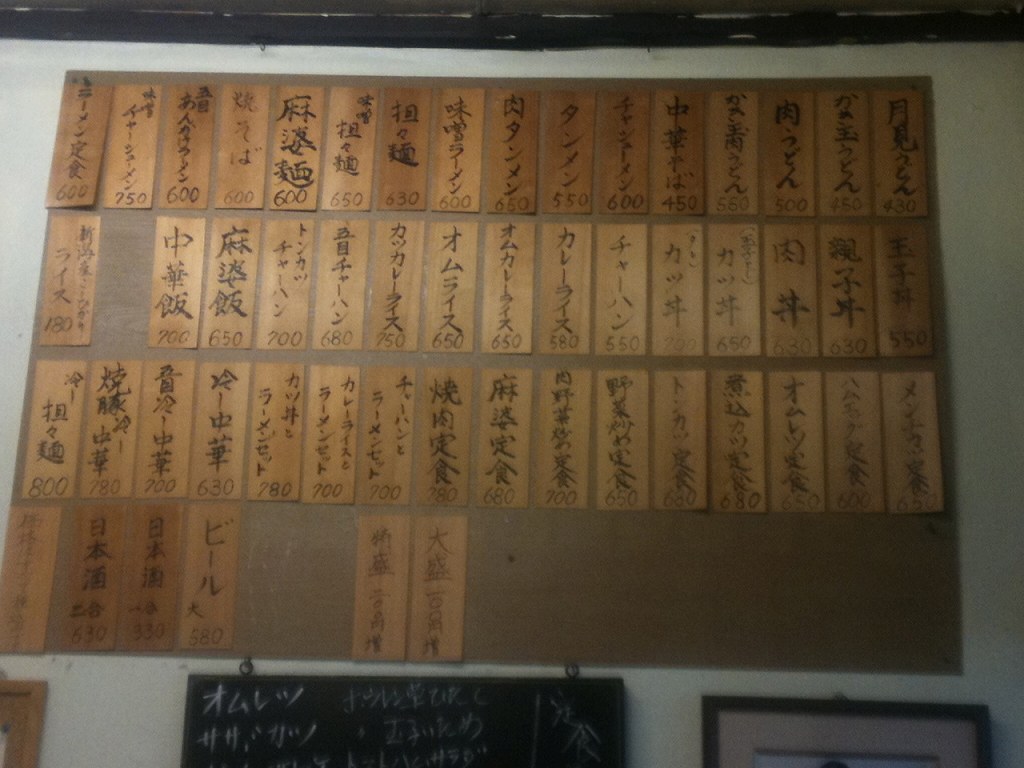 月見うどん 430
かき玉うどん 450
肉うどん 500
かき玉肉うどん 550
中華そば 450
チャーシューメン 600
タンメン 550
肉タンメン 650
味噌ラーメン 600
担々麺 630
味噌担々麺 650
麻婆麺 600
焼そば 600
五目あんかけラーメン 600
味噌チャーシューメン 750
ラーメン定食 600
玉子丼 550
親子丼 630
肉丼 630
カツ丼 650
カツ丼 700
チャーハン 550
カレーライス 580
オムカレーライス 650
オムライス 650
カツカレーライス 750
五目チャーハン 680
トンカツチャーハン 700
麻婆飯 650
中華飯 700
ライス 180
メンチカツ定食
定食 600
オムレツ定食 650
煮込カツ定食 680
トンカツ定食
野菜炒め定食 650
肉野菜炒め定食 700
麻婆定食 680
焼肉定食 780
チャーハンとラーメンセット 700
カレーライスとラーメンセット 700
カツ丼とラーメンセット 780
冷し中華 630
五目冷し中華 700
焼豚冷し中華 780
冷し担々麺 800
大盛 百円増
特盛 百円増
ビール 大 580
日本酒 一合 330
日本酒 二合 630
オムレツ
定食